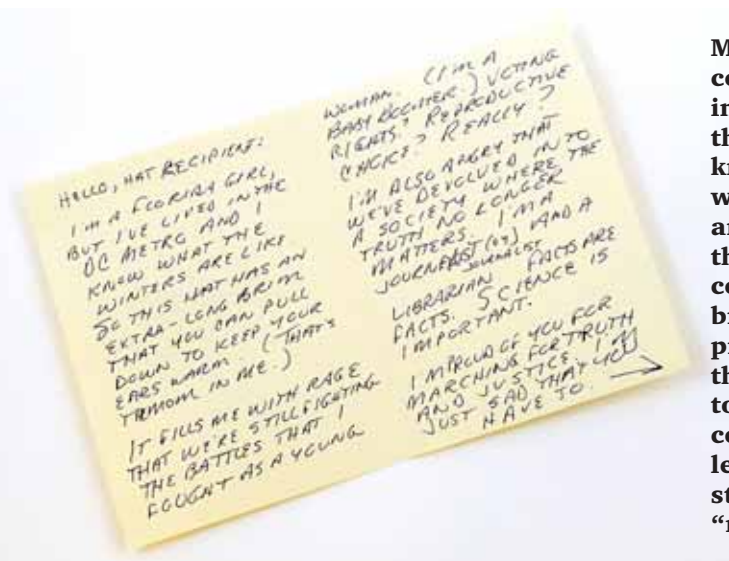 HELLO, HAT RECIPIENT:
I'M A FLORIDA GIRL,
BUT I'VE LIVED IN THE
DC METRO AND I
KNOW WHAT THE
WINTERS ARE LIKE
SO THIS HAT HAS AN
EXTRA-LONG BRIM
THAT YOU CAN PULL
DOWN TO KEEP YOUR
EARS WARM. (THAT'S
MOM IN ME.)
IT FILLS ME WITH RAGE
THAT WE'RE STILL FIGHTING
THE BATTLES THAT I
FOUGHT AS A YOUNG
WOMAN. (I'M A
BABY BOOMER.) VOTING
RIGHTS? REPRODUCTIVE
CHOICE? REALLY?
I'M ALSO ANGRY THAT
WE'VE DEVOLVED IN TO
A SOCIETY WHERE THE
TRUTH NO LONGER
MATTERS. I'M A
AND A
JOURNALIST
LIBRARIAN FACTS ARE
FACTS. SCIENCE IS
IMPORTANT.
I'M PROUD OF YOU FOR
MARCHING FOR TRUTH
AND JUSTICE. I'M
JUST SAD THAT YOU
HAVE TO. →
M
co
in
th
kn
w
an
th
co
br
pr
th
to
co
le
st
“r